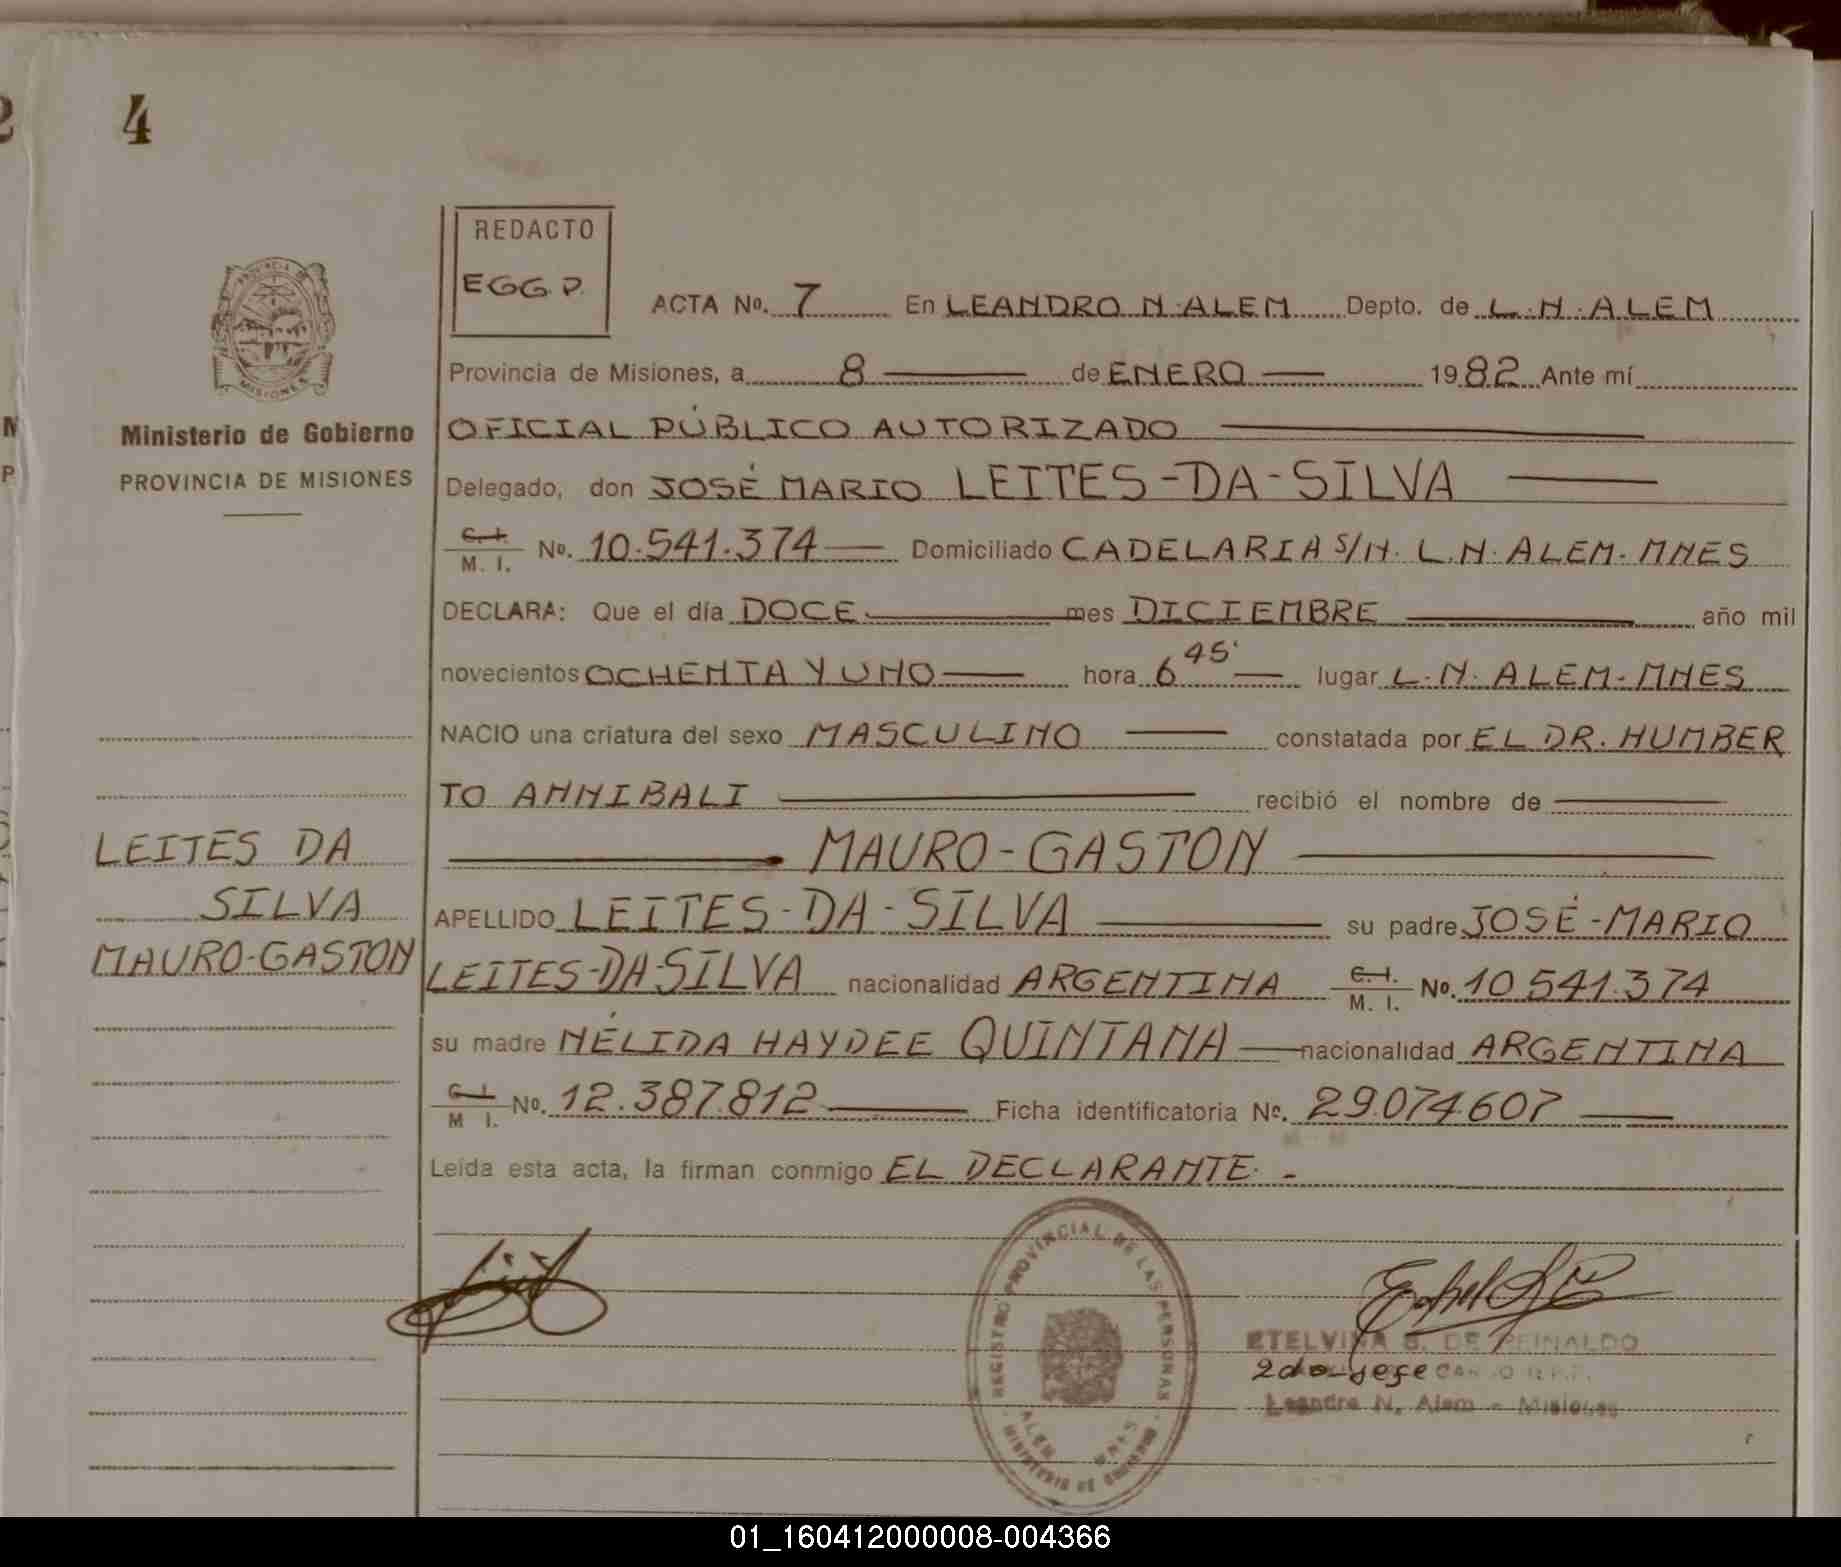 2
4
REDACTO
EGG.P.
ACTA No. 7 En LEANDRO N. ALEM Depto. de L. N. ALEM
Provincia de Misiones, a 8 de ENERO 1982 Ante mí
Ministerio de Gobierno
PROVINCIA DE MISIONES
OFICIAL PÚBLICO AUTORIZADO
Delegado, don JOSÉ MARIO LEITES-DA-SILVA
C. I. / M. I. No. 10.541.374 Domiciliado CADELARIA S/N. L.N. ALEM. MNES
DECLARA: Que el día DOCE mes DICIEMBRE año mil
novecientos OCHENTA Y UNO hora 6 45' lugar L. N. ALEM. MNES
NACIO una criatura del sexo MASCULINO constatada por EL DR. HUMBER
TO ANNIBALI recibió el nombre de
MAURO-GASTON
LEITES DA
SILVA
MAURO-GASTON
APELLIDO LEITES-DA-SILVA su padre JOSÉ-MARIO
LEITES-DA-SILVA nacionalidad ARGENTINA C. I. / M. I. No. 10.541.374
su madre NÉLIDA HAYDEE QUINTANA nacionalidad ARGENTINA
C. I. / M I. No. 12.387.812 Ficha identificatoria No. 29.074.607
Leída esta acta, la firman conmigo EL DECLARANTE. -
REGISTRO PROVINCIAL DE LAS PERSONAS
ALEM MNES
MINISTERIO DE GOBIERNO
ETELVINA S. DE REINALDO
2do-jefe
Leandro N. Alem - Misiones
01_160412000008-004366